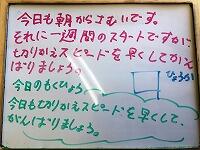 今日も朝からさむいです。
それに一週間のスタートですがに
切りかえスピードを早くしてがん
ばりましょう。
ひょうか
今日のもくひょう
今日も切りかえスピードを早くして、
がんばりましょう。